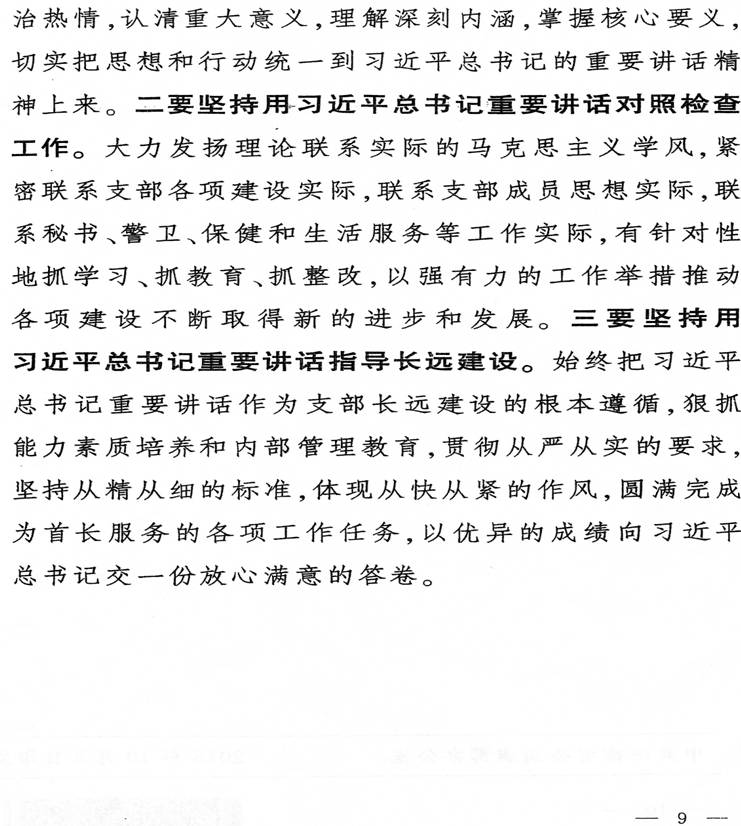 治热情,认清重大意义,理解深刻内涵,掌握核心要义,
切实把思想和行动统一到习近平总书记的重要讲话精
神上来。二要坚持用习近平总书记重要讲话对照检查
工作。大力发扬理论联系实际的马克思主义学风,紧
密联系支部各项建设实际,联系支部成员思想实际,联
系秘书、警卫、保健和生活服务等工作实际,有针对性
地抓学习、抓教育、抓整改,以强有力的工作举措推动
各项建设不断取得新的进步和发展。三要坚持用
习近平总书记重要讲话指导长远建设。始终把习近平
总书记重要讲话作为支部长远建设的根本遵循,狠抓
能力素质培养和内部管理教育,贯彻从严从实的要求,
坚持从精从细的标准,体现从快从紧的作风,圆满完成
为首长服务的各项工作任务,以优异的成绩向习近平
总书记交一份放心满意的答卷。
— 9 —